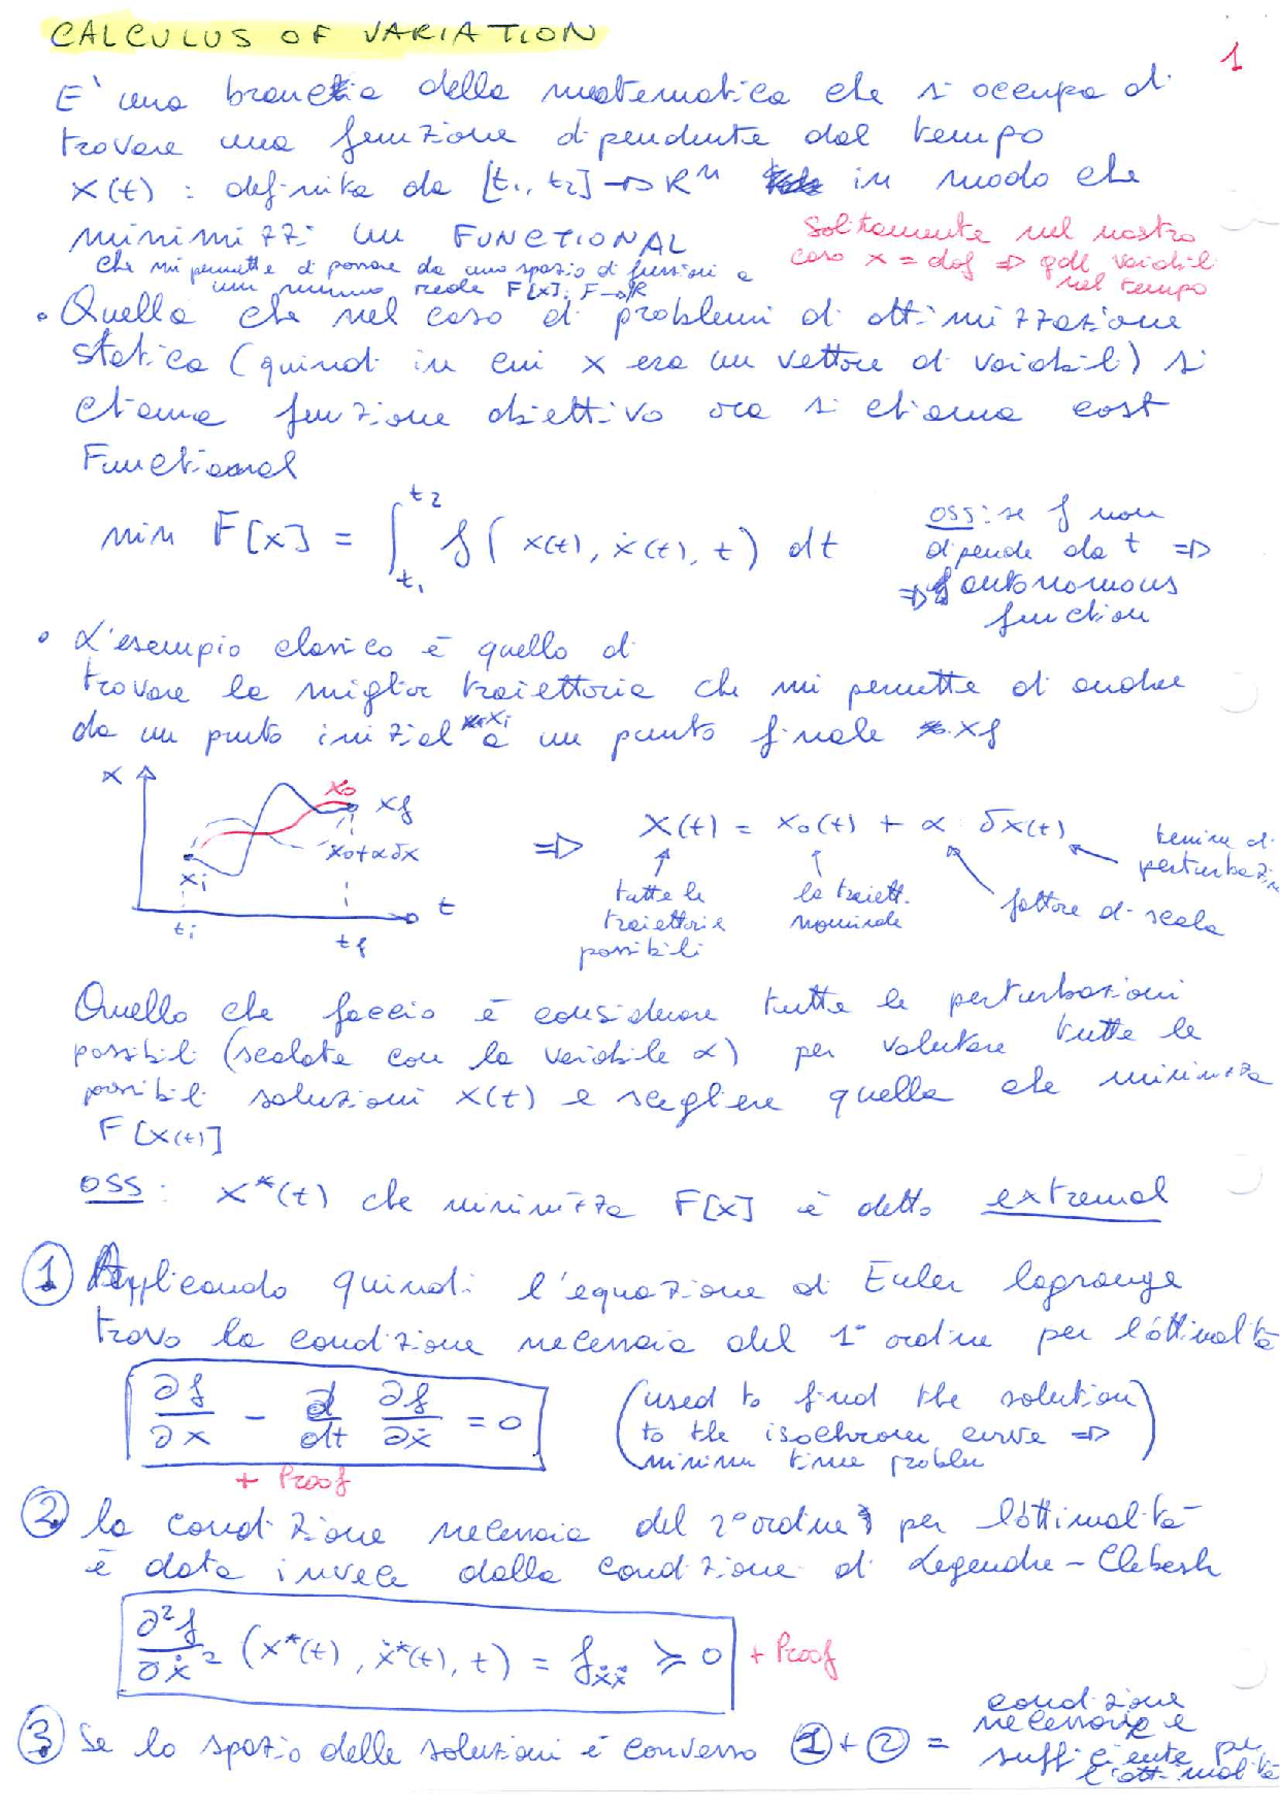 CALCULUS OF VARIATION
1
E' una branchia della matematica che si occupa di
trovare una funzione dipendente dal tempo
x(t) : definita da [t₁, t₂] → Rⁿ in modo che
minimizzi un FUNCTIONAL
che mi permette di passare da uno spazio di funzioni a
un numero reale F[x]: F→R
Solitamente nel nostro
caso x = dof ⇒ gdl variabili
nel tempo
• Quella che nel caso di problemi di ottimizzazione
statica (quindi in cui x era un vettore di variabili) si
chiama funzione obiettivo ora si chiama cost
Functional
min F[x] = ∫_{t₁}^{t₂} f( x(t), ẋ(t), t) dt
oss: se f non
dipende da t ⇒
⇒ f autonomous
function
• L'esempio classico è quello di
trovare la miglior traiettoria che mi permette di andare
da un punto iniziale xi a un punto finale xf
x
x₀
xf
x₀+αδx
xi
t
ti
tf
⇒ x(t) = x₀(t) + α · δx(t)
tutte le
traiettorie
possibili
la traiett.
nominale
fattore di scala
termine di
perturbazione
Quello che faccio è considerare tutte le perturbazioni
possibili (scalate con la variabile α) per valutare tutte le
possibili soluzioni x(t) e scegliere quella che minimizza
F[x(t)]
OSS : x*(t) che minimizza F[x] è detto extremal
① Applicando quindi l'equazione di Euler Lagrange
trovo la condizione necessaria del 1° ordine per l'ottimalità
∂f/∂x - d/dt ∂f/∂ẋ = 0
(used to find the solution
to the isochrone curve ⇒
minimum time problem)
+ Proof
② la condizione necessaria del 2° ordine per l'ottimalità
è data invece dalla condizione di Legendre - Clebsh
∂²f/∂ẋ² (x*(t), ẋ*(t), t) = f_ẋẋ ⩾ 0
+ Proof
③ Se lo spazio delle soluzioni è convesso ① + ② =
condizione
necessaria e
sufficiente per
l'ottimalità